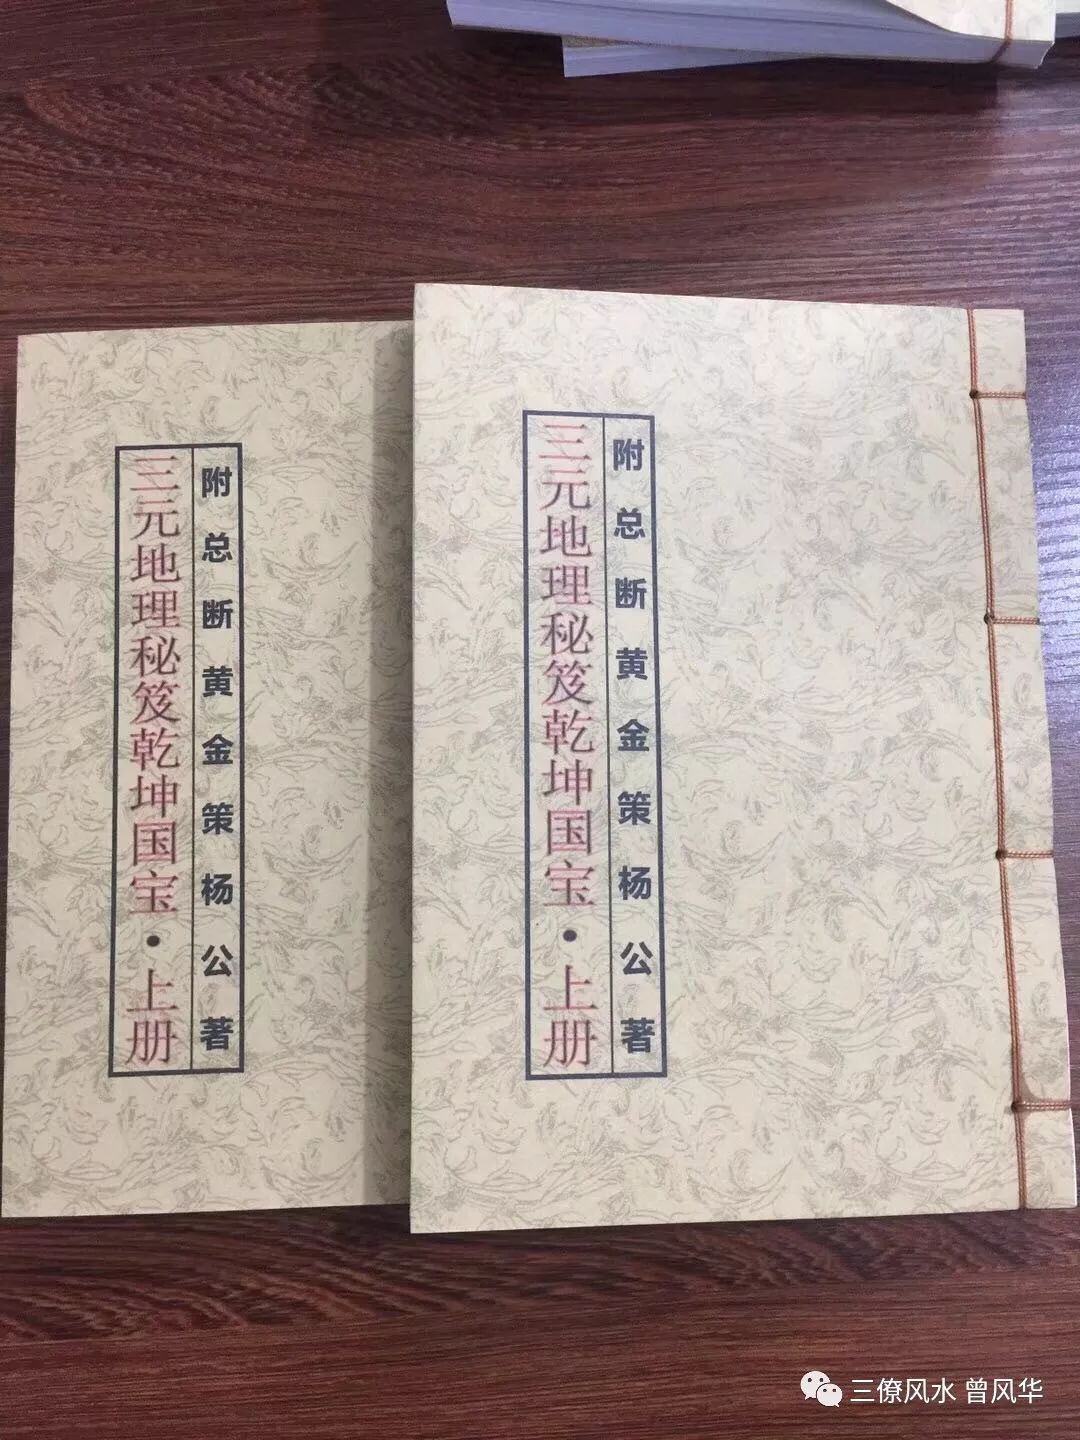 三元地理秘笈乾坤国宝·上册
附总断黄金策杨公著
三元地理秘笈乾坤国宝·上册
附总断黄金策杨公著
三僚风水 曾风华